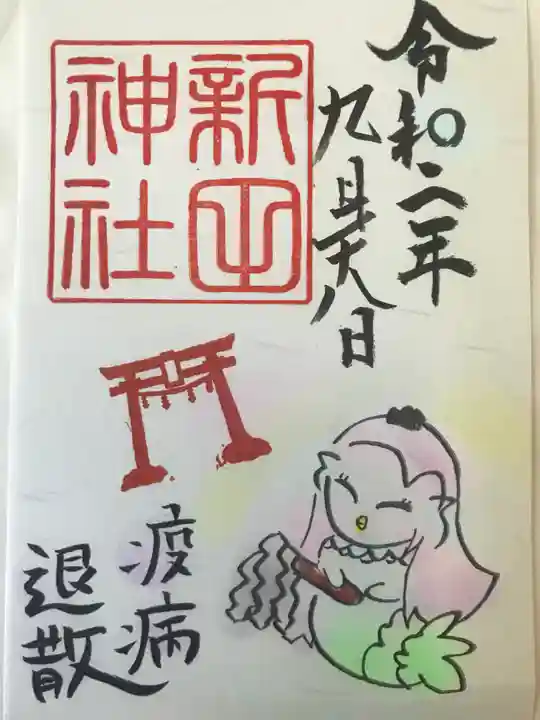 令和二年
九月二十八日
新田
神社
疫病
退散